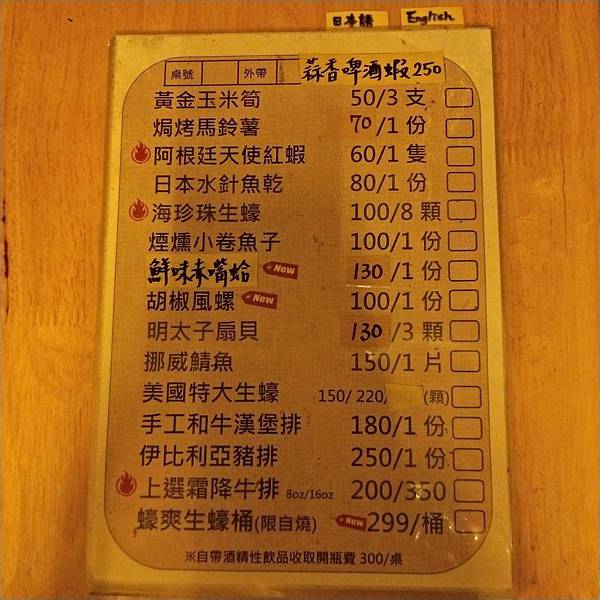 日本語 English
桌號 外帶 蒜香啤酒蝦 250
黃金玉米筍 50/3 支
焗烤馬鈴薯 70/1 份
阿根廷天使紅蝦 60/1 隻
日本水針魚乾 80/1 份
海珍珠生蠔 100/8 顆
煙燻小卷魚子 100/1 份
鮮味赤嘴蛤 New 130/1 份
胡椒風螺 New 100/1 份
明太子扇貝 130/3 顆
挪威鯖魚 150/1 片
美國特大生蠔 150/ 220/ (顆)
手工和牛漢堡排 180/1 份
伊比利亞豬排 250/1 份
上選霜降牛排 8oz/16oz 200/350
蠔爽生蠔桶(限自燒) New 299/桶
※自帶酒精性飲品收取開瓶費 300/桌